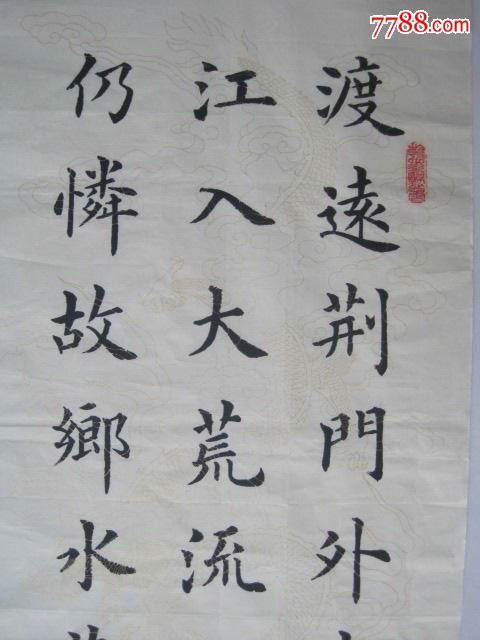 7788.com
渡遠荆門外
江入大荒流
仍憐故鄉水